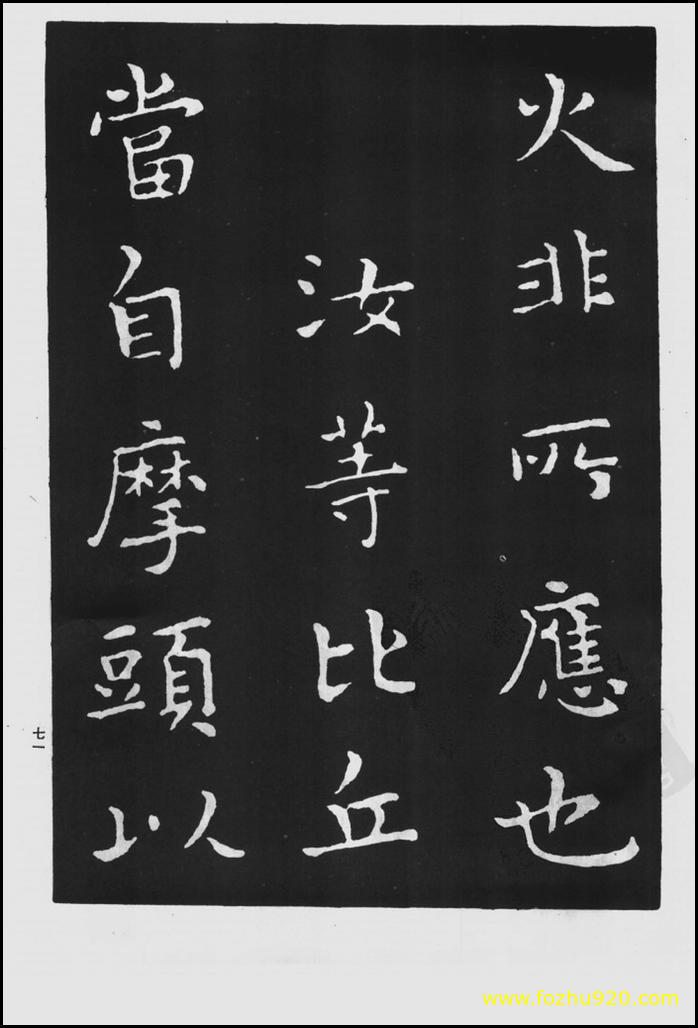 火非所應也
汝等比丘
當自摩頭以
七一
www.fozhu920.com